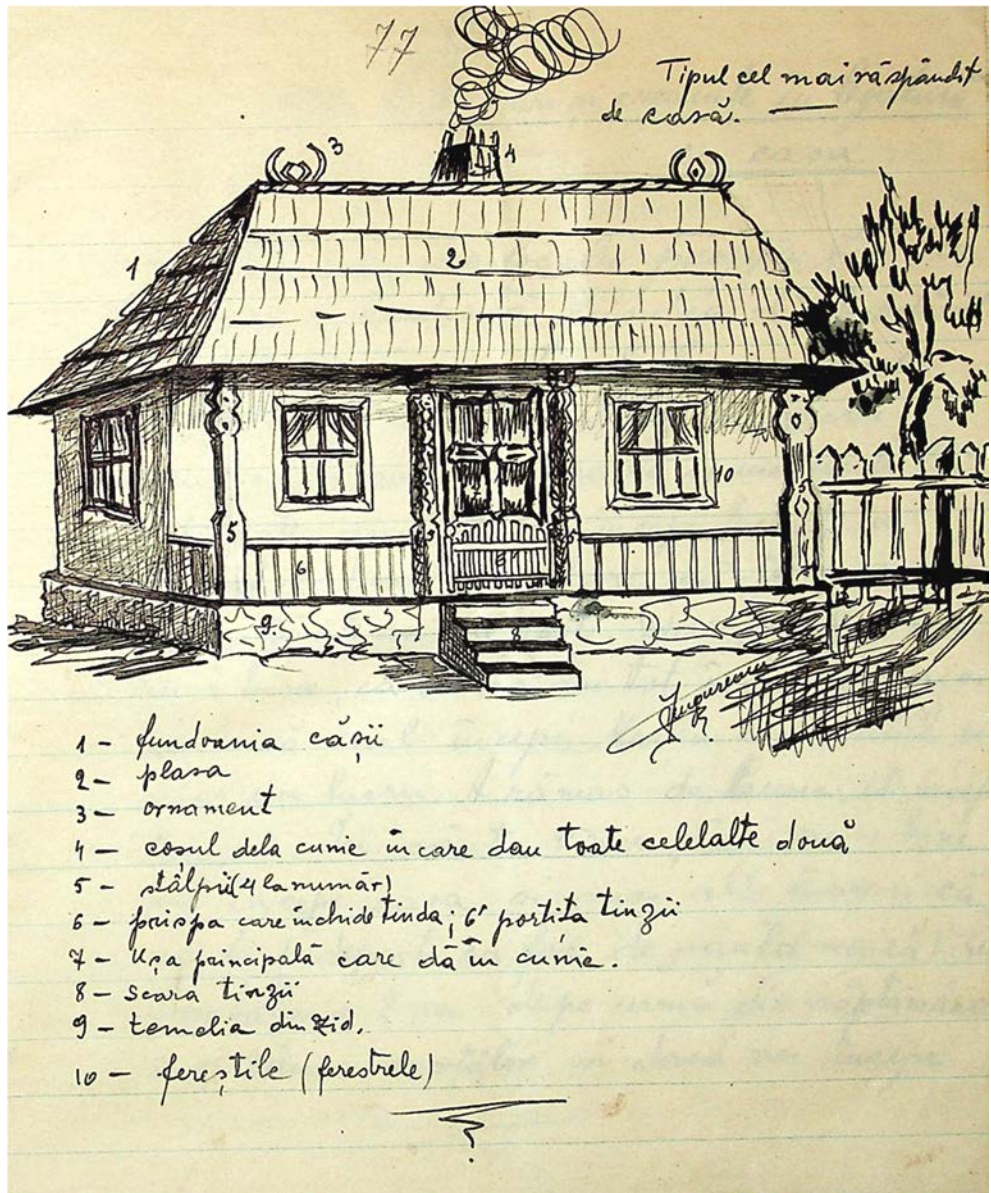 77
Tipul cel mai răspândit
de casă.
3
4
1
2
10
5
5
5
6
6'
9.
8
1 - fundoania căsii
2 - plasa
3 - ornament
4 - coșul dela cunie în care dau toate celelalte două
5 - stâlpii (4 la număr)
6 - prispa care închide tinda; 6' portița tinzii
7 - Ușa principală care dă în cunie.
8 - scara tinzii
9 - temelia din zid.
10 - fereștile (ferestrele)